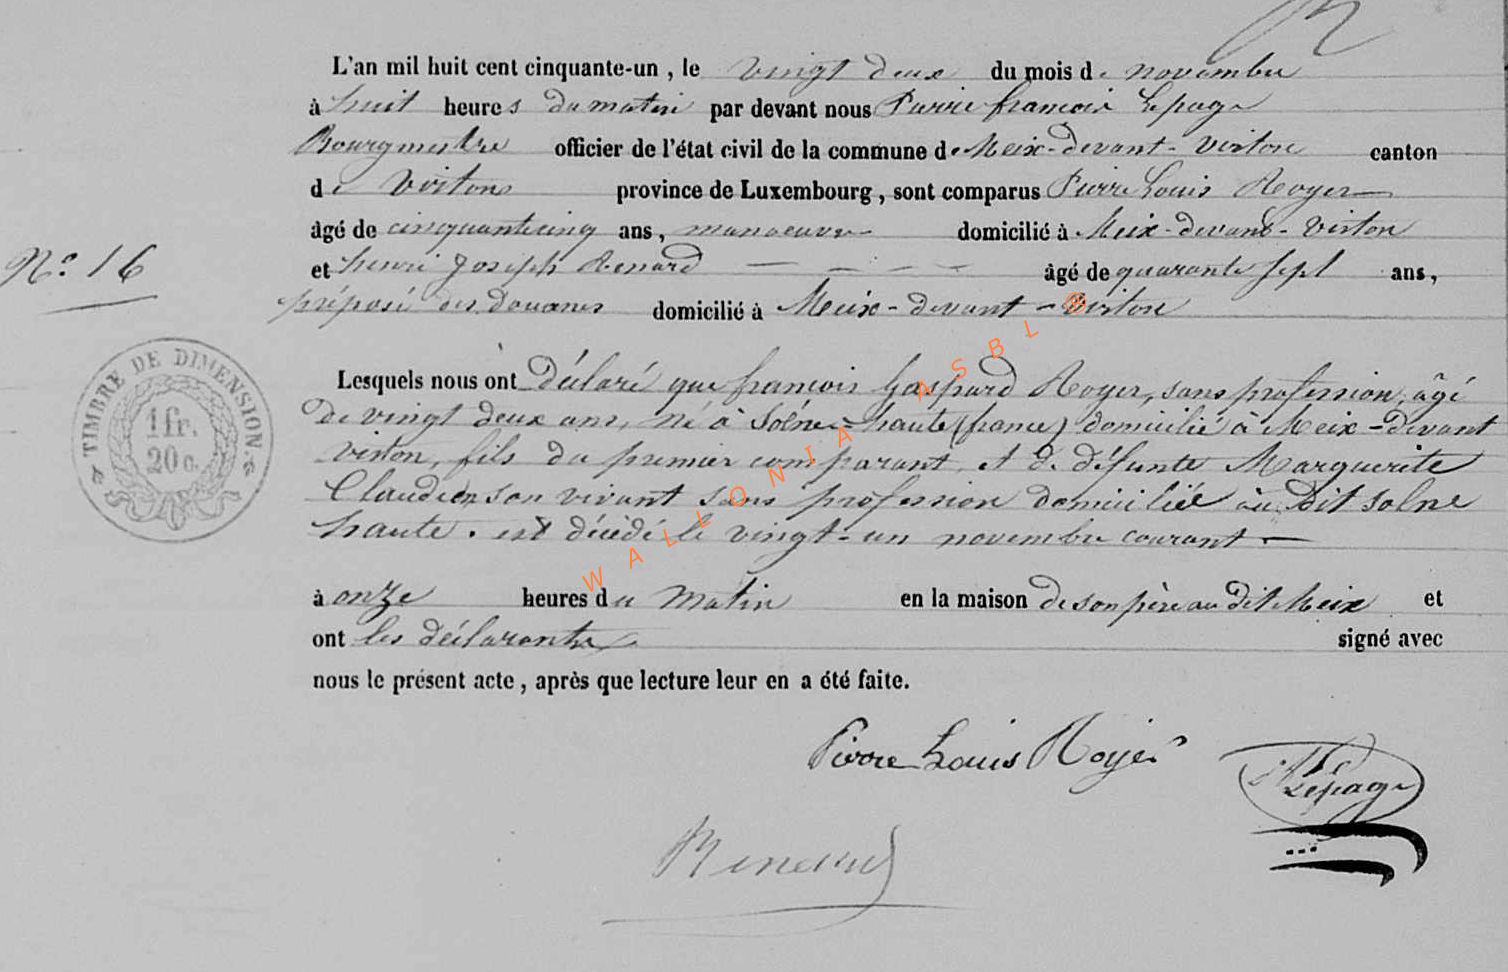 L'an mil huit cent cinquante-un, le vingt deux du mois de novembre
à huit heures du matin par devant nous Pierre françois Lepage
Bourgmestre officier de l'état civil de la commune de Meix-devant-Virton canton
de Virton province de Luxembourg, sont comparus Pierre Louis Royer
âgé de cinquantecinq ans, manoeuvre domicilié à Meix-devant-Virton
N° 16
et henri Joseph Renard âgé de quarante sept ans,
préposé des douanes domicilié à Meix-devant-Virton
TIMBRE DE DIMENSION.
1 fr.
20 c.
Lesquels nous ont déclaré que francois Gaspard Royer, sans profession, âgé
de vingt deux ans, né à Solne-haute (france) domicilié à Meix-devant
virton, fils du premier comparant, et de défunte Marguerite
en son vivant sans profession domiciliée au dit solne
haute. est décédé le vingt-un novembre courant
à onze heures du matin en la maison de son père au dit Meix et
ont les déclarants signé avec
nous le présent acte, après que lecture leur en a été faite.
Pierre Louis Royer
Lepage
Renard
WALLONIA ASBL ©